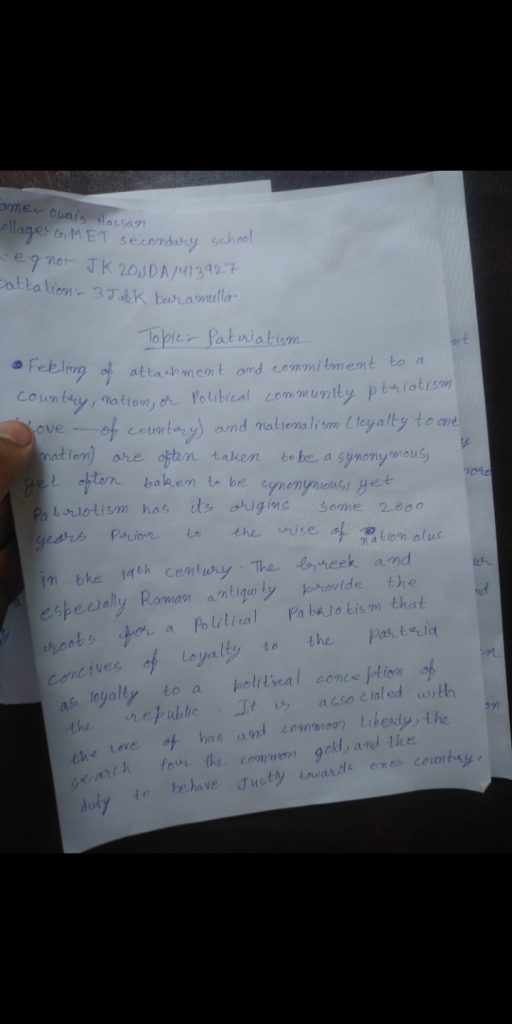 ame:- Ouais Hassan
ollage:- G.MET secondary school
eg no:- JK20JDA/413927
battalion:- 3J&K baramulla.
Topic:- Patriatism
• Feeling of attachment and commitment to a
country, nation, or Political community ptriatism
(Love — of country) and nationalism (loyalty to one
nation) are often taken to be a synonymous,
yet often baken to be synonymous, yet
Patriotism has its origins some 2000
years Prior to the urise of nation olus
in the 19th century. The Greek and
especially Raman antiquity provide the
roots for a Political Patriotism that
concives of loyalty to the parteria
as loyalty to a political conception of
the republic. It is associated with
the love of has and common liberty, the
search four the common gold, and the
duty to behave Justly towards ones country.